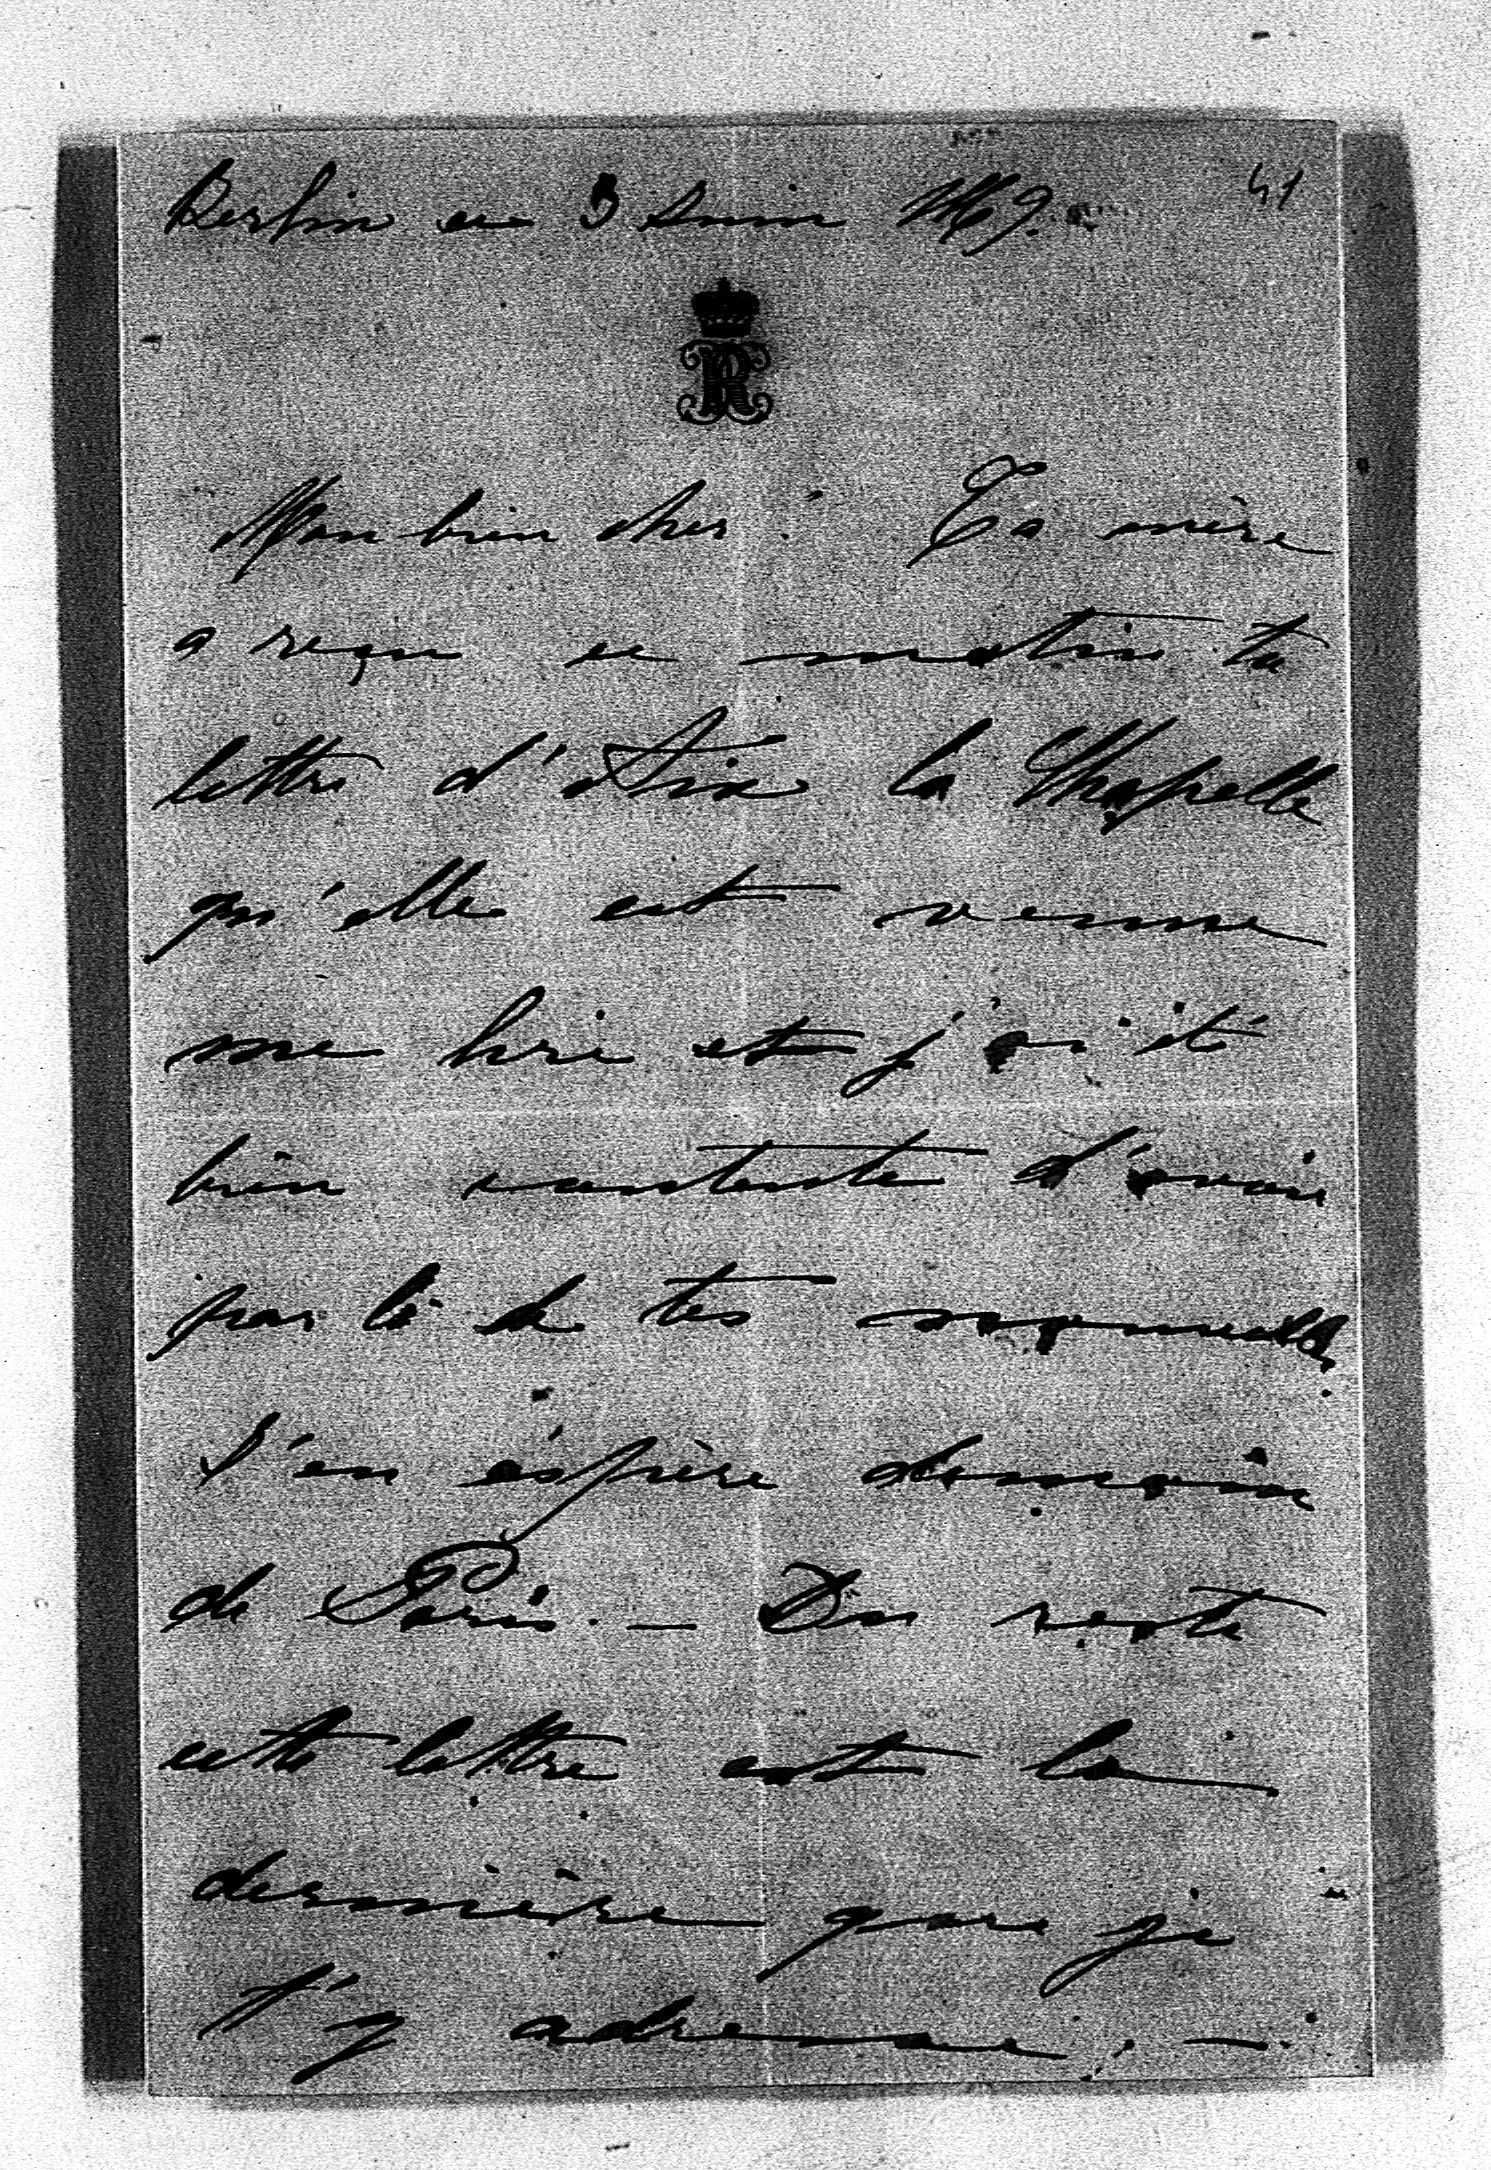 Berlin ce 3 Juin 1869.
41
Mon bien cher! Ta mère
a reçu ce matin ta
lettre d'Aix la Chapelle
qu'elle est venue
me lire et j'ai été
bien contente d'avoir
par là de tes nouvelles.
J'en espère demain
de Paris. — Du reste
cette lettre est la
dernière que je
t'y adresse; —